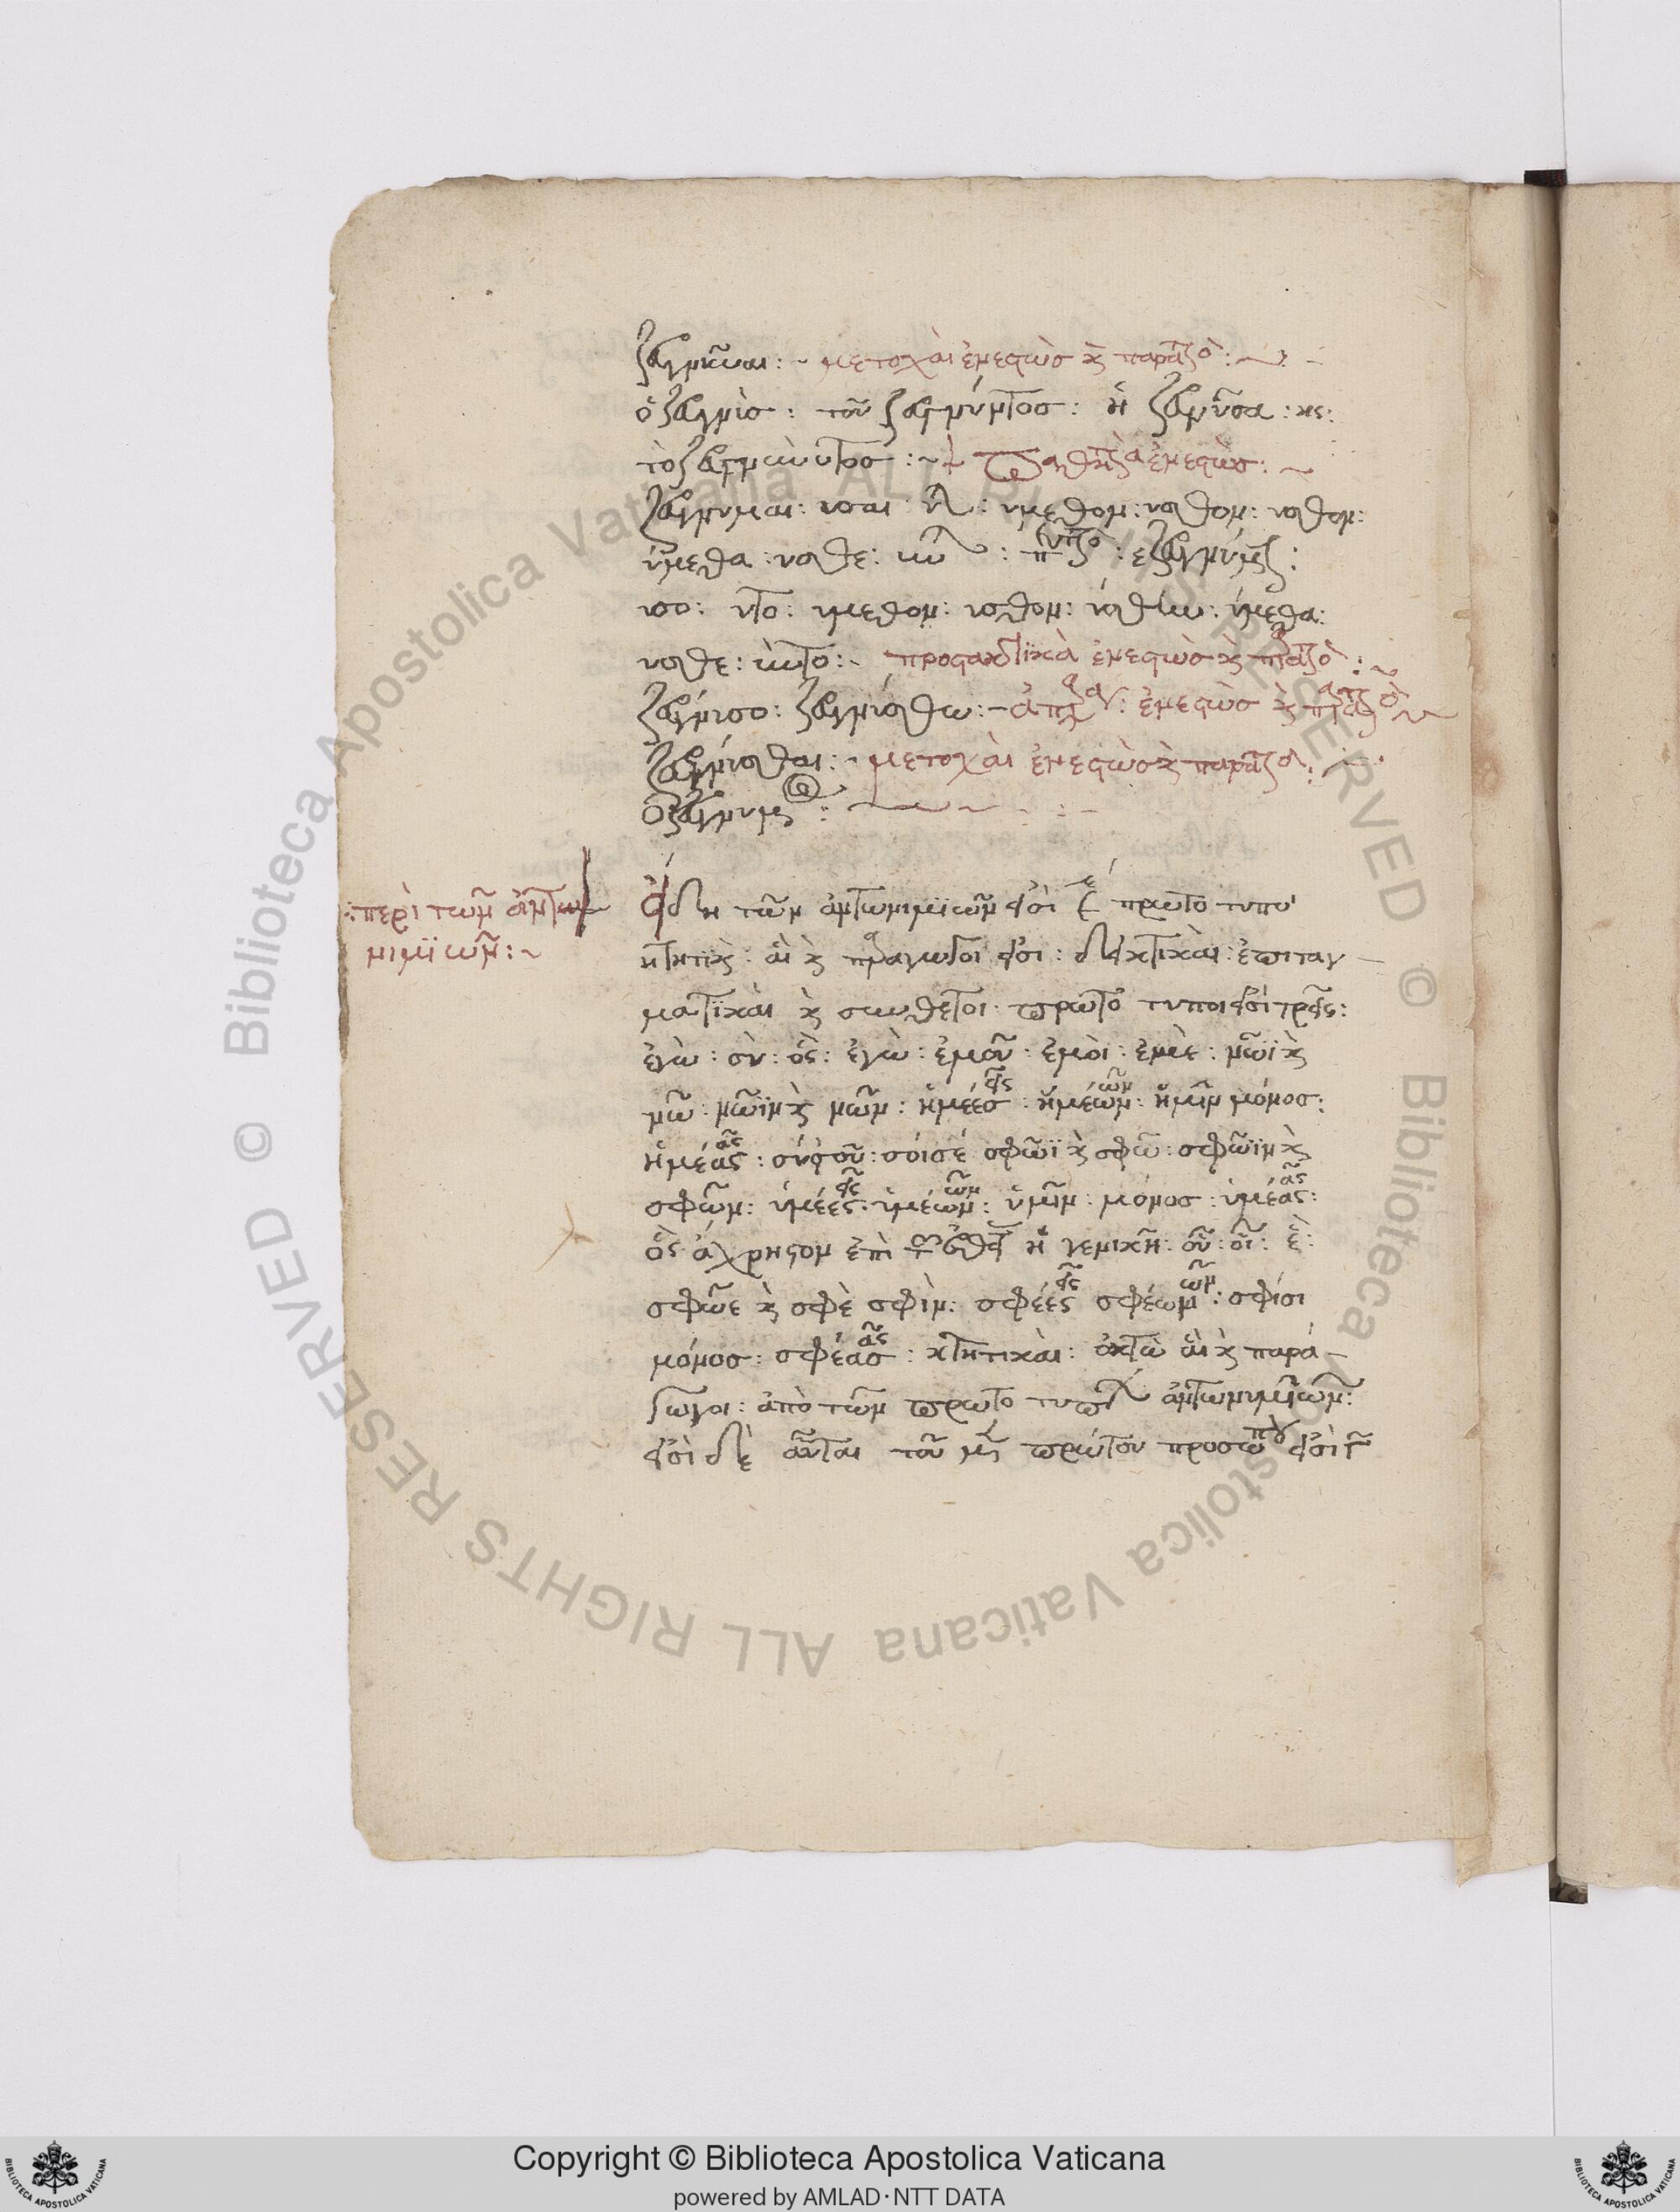 ζευγνύναι: μετοχαὶ ἐνεστὼς καὶ παρατατικὸς:
ὁ ζευγνὺς: τοῦ ζευγνύντος: ἡ ζευγνῦσα: ης:
τὸ ζευγνὺν ύντος: παθητικὰ ἐνεστὼς:
ζεύγνυμαι: υσαι υται: υμεθον: υσθον: υσθον:
ύμεθα: υσθε: υνται: παρατατικὸς: ἐζευγνύμην:
υσο: υτο: υμεθον: υσθον: ύσθην: ύμεθα:
υσθε: υντο: προστακτικὰ ἐνεστὼς καὶ παρατατικὸς:
ζεύγνυσο: ζευγνύσθω: ἀπαρέμφατα: ἐνεστὼς καὶ παρατατικὸς
ζεύγνυσθαι: μετοχαὶ ἐνεστὼς καὶ παρατατικὸς:
ὁ ζευγνύμενος:
περὶ τῶν ἀντω
νυμϊῶν:
Εἴδη τῶν ἀντωνυμϊῶν εἰσὶ πρωτότυποι
κτητικαὶ: αἳ καὶ παράγωγοί εἰσι: δεικτικαὶ: ἐπιταγ
ματϊκαὶ καὶ σύνθετοι πρωτότυποι εἰσὶ τρεῖς:
ἐγὼ: σὺ: ὅς: ἐγὼ: ἐμοῦ: ἐμοὶ: ἐμὲ: νῶϊ καὶ
νῶ: νῶϊν καὶ νῶν: ἡμέες εῖς: ἡμέων ῶν: ἡμῖν μόνος:
ἡμέας ᾶς: σὺ σοῦ: σοὶ σέ σφῶϊ καὶ σφῶ: σφῶϊν καὶ
σφῶν: ὑμέες εῖς: ὑμέων ῶν: ὑμῖν: μόνος: ὑμέας ᾶς:
ὃς ἄχρηστον ἐπὶ τῆς εὐθείας ἡ γενικὴ: οὗ: οἷ: ἕ:
σφῶε καὶ σφὲ σφὶν: σφέες εῖς σφέων ῶν: σφίσι
μόνος: σφέας ᾶς: κτητικαὶ: ὀκτὼ αἳ καὶ παρά
γωγοι: ἀπὸ τῶν πρωτοτύπων ἀντωνυμιῶν:
εἰσὶ δὲ αὗται τοῦ μὲν πρώτου προσώπου εἰσὶ